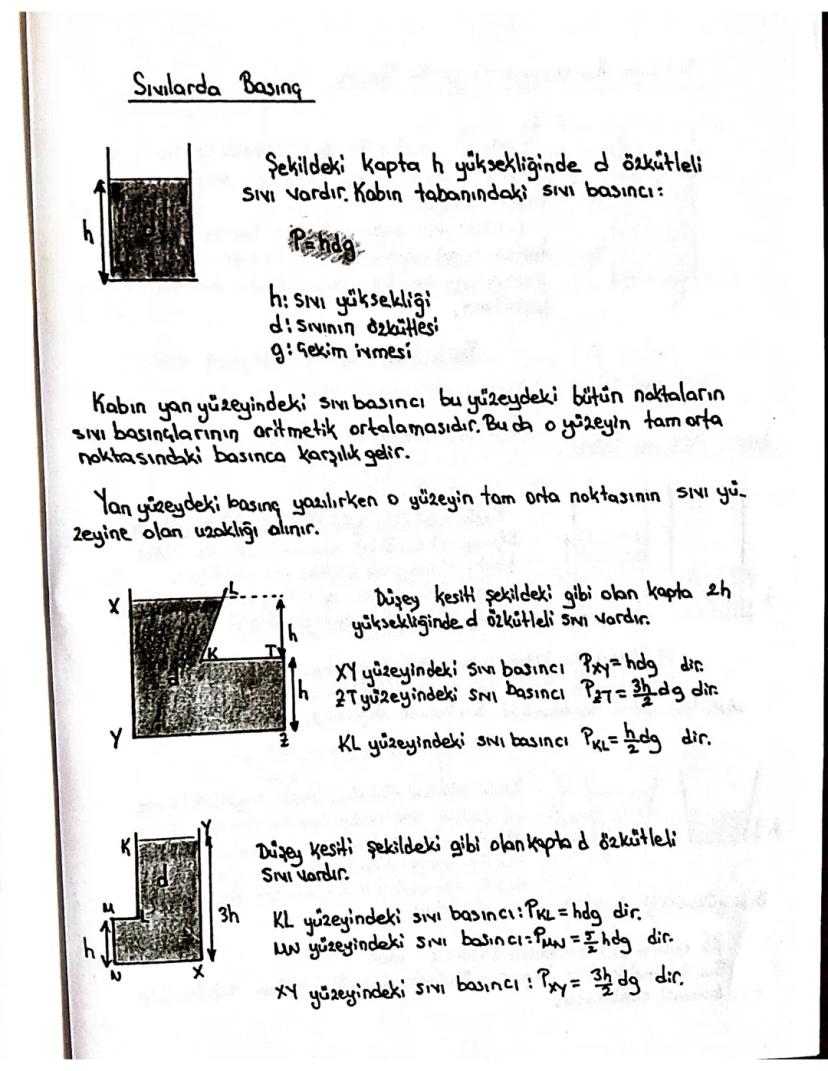 Sıvılarda Basınç
Şekildeki kapta h yüksekliğinde d özkütleli
sıvı vardır. Kabın tabanındaki sıvı basıncı:
h
d
P=hdg
h: sıvı yüksekliği
d: sıvının özkütlesi
g: çekim ivmesi
Kabın yan yüzeyindeki sıvı basıncı bu yüzeydeki bütün noktaların
sıvı basınçlarının aritmetik ortalamasıdır. Bu da o yüzeyin tam orta
noktasındaki basınca karşılık gelir.
Yan yüzeydeki basınç yazılırken o yüzeyin tam orta noktasının sıvı yü-
zeyine olan uzaklığı alınır.
X
L
h
K
T
d
h
Y
Z
Düşey kesiti şekildeki gibi olan kapta 2h
yüksekliğinde d özkütleli sıvı vardır.
XY yüzeyindeki sıvı basıncı PXY=hdg dir.
ZT yüzeyindeki sıvı basıncı PZT=3h/2 dg dir.
KL yüzeyindeki sıvı basıncı PKL=h/2 dg dir.
K
Y
d
M
L
3h
h
N
X
Düşey kesiti şekildeki gibi olan kapta d özkütleli
sıvı vardır.
KL yüzeyindeki sıvı basıncı: PKL=hdg dir.
MN yüzeyindeki sıvı basıncı: PMN=5/2 hdg dir.
XY yüzeyindeki sıvı basıncı: PXY=3h/2 dg dir.